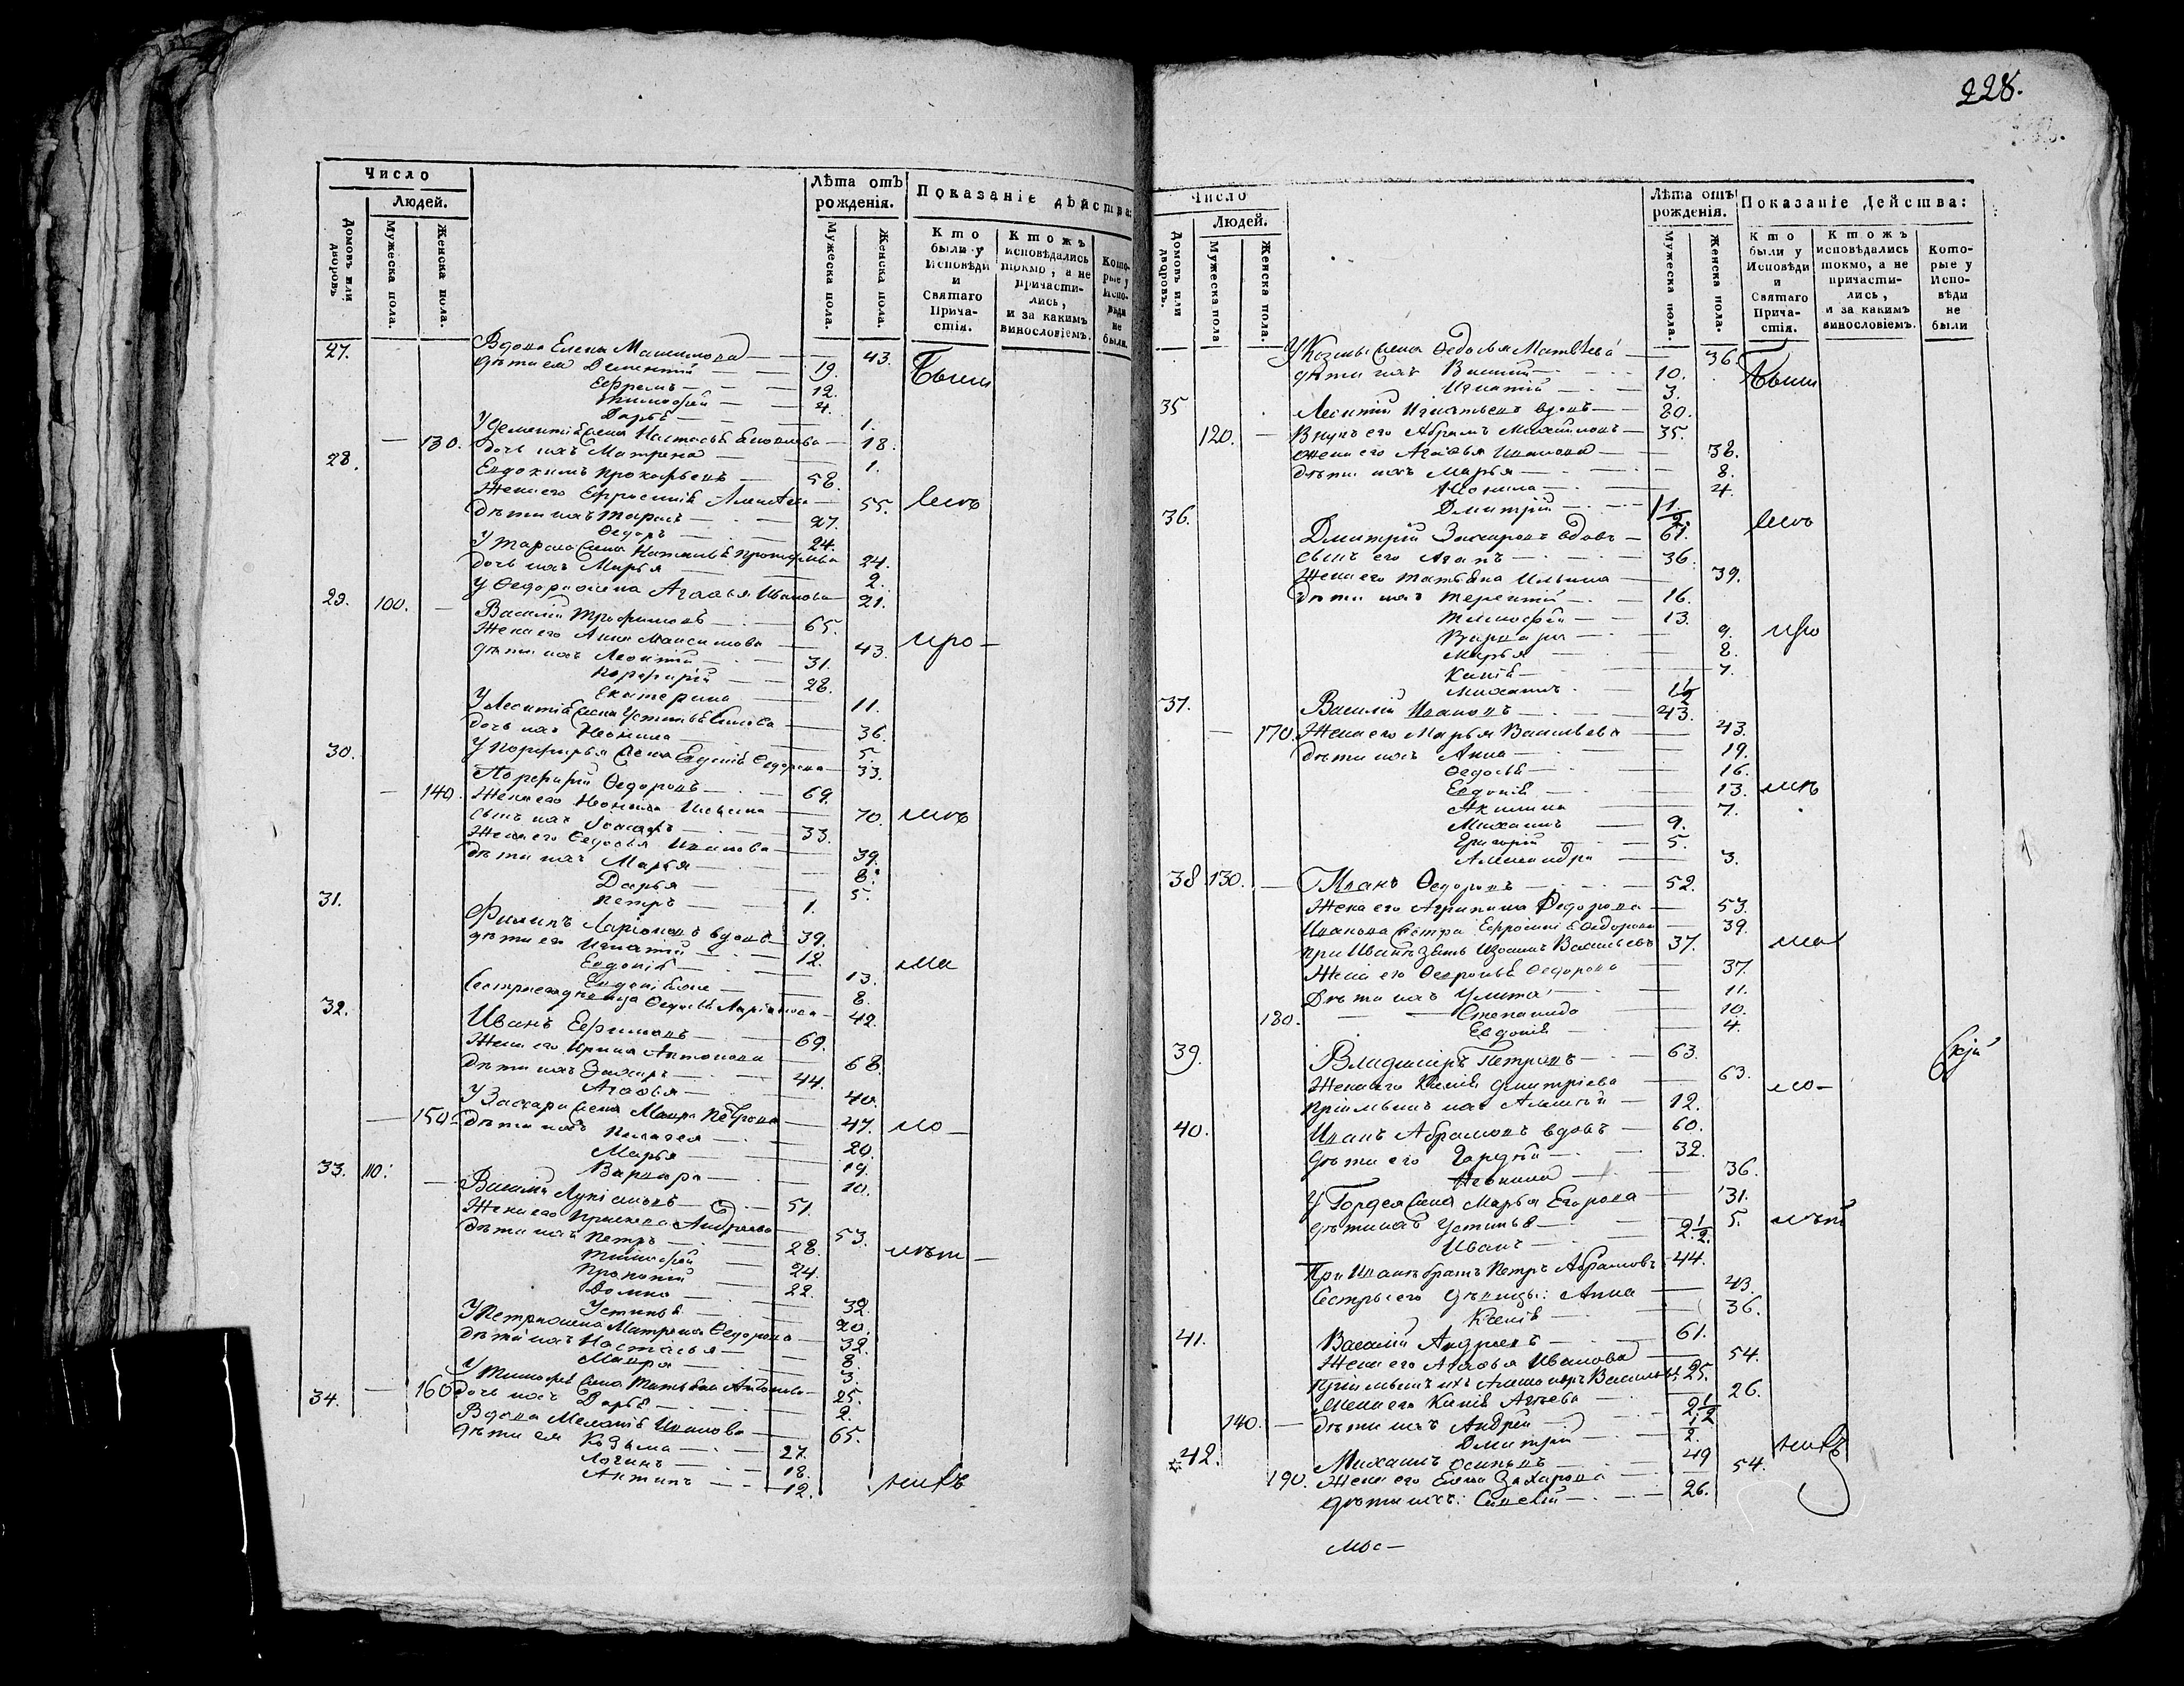 Число
Людей.
Лѣта отъ рожденія.
Показаніе дѣйства:
Домовъ или дворовъ.
Мужеска пола.
Женска пола.
Мужеска пола.
Женска пола.
Кто были у Исповѣди и Святаго Причастія.
Ктожъ исповѣдались токмо, а не причастились, и за какимъ винословіемъ.
Которые у Исповѣди не были.
27. Вдова Елена Максимова — 43. Были
дѣти ея Дементій — 19.
Ефремъ — 12.
Тимофей — 4.
Дарья — 1.
У Дементія жена Настасья — 18.
130. дочь ихъ Матрена — 1.
28. Евдокимъ Прокофьевъ — 58.
Жена его Ефросинія — 55.
дѣти ихъ Тарасъ — 27.
Ѳедоръ — 24.
У Тараса жена Наталья — 24.
дочь ихъ Марья — 2.
У Ѳедора жена Агафья Иванова — 21.
29. 100. Василій Трофимовъ — 65.
Жена его Анна Максимова — 43.
дѣти ихъ Леонтій — 31.
Порфирій — 28.
Екатерина — 11.
У Леонтія жена Устинья — 36.
дочь ихъ Неонила — 5.
У Порфирья жена Евдокія Ѳедорова — 33.
30. Порфирій Ѳедоровъ — 69.
140. Жена его Неонила — 70.
сынъ ихъ — 33.
Жена его Ѳедосья Иванова — 39.
дѣти ихъ Марья — 8.
Дарья — 5.
Петръ — 1.
31. Филипъ Ларіоновъ вдовъ — 39.
дѣти его Игнатій — 12.
Евдокія — 13.
Евдокія — 8.
Сестра его дѣвица Ѳедосья Ларіонова — 42.
32. Иванъ Ефимовъ — 69.
Жена его Ирина Антонова — 68.
дѣти ихъ Захаръ — 44.
Агафья — 40.
У Захара жена Мавра Петрова — 47.
150. дѣти ихъ Пелагея — 20.
Марья — 19.
Варвара — 10.
33. 110. Василій — 51.
Жена его Прасковья Андреева — 53.
дѣти ихъ Петръ — 28.
Тимофей — 24.
Прокопій — 22.
Домна — 32.
Устинья — 20.
У Петра жена Матрена Ѳедорова — 32.
дѣти ихъ Настасья — 8.
Мавра — 3.
У Тимофея жена Татьяна — 25.
160. дочь ихъ Дарья — 2.
34. Вдова Меланія Иванова — 65.
дѣти ея Козьма — 27.
Логинъ — 18.
Антипъ — 12.
228.
Число
Людей.
Лѣта отъ рожденія.
Показаніе Действа:
Домовъ или дворовъ.
Мужеска пола
Женска пола.
Мужеска пола.
Женска пола.
Кто были у Исповѣди и Святаго Причастія.
Ктожъ исповѣдались токмо, а не причастились, и за какимъ винословіемъ.
Которые у Исповѣди не были
У Козмы жена Ѳедосья Матвѣева — 36. Были
дѣти ихъ Василій — 10.
Игнатій — 3.
35 Леонтій Игнатьевъ вдовъ — 80.
120. Внукъ его Абрамъ Михайловъ — 35.
Жена его Агафья Иванова — 38.
дѣти ихъ Марья — 8.
4.
Дмитрій — 1 1/2.
36. Дмитрій Захаровъ вдовъ — 61.
сынъ его Агапъ — 36.
Жена его Татьяна Ильина — 39.
дѣти ихъ Терентій — 16.
Тимофей — 13.
Варвара — 9.
Марья — 8.
Ксенія — 7.
Михаилъ — 1 1/2
37. Василій Ивановъ — 43.
170. Жена его Марья Васильева — 43.
дѣти ихъ Анна — 19.
Ѳедосья — 16.
Евдокія — 13.
Акилина — 7.
Михаилъ — 9.
Григорій — 5.
Александра — 3.
38 130. Иванъ Ѳедоровъ — 52.
Жена его Агрипина Ѳедорова — 53.
Иванова сестра Ефросинія Ѳедорова — 39.
При Иванѣ зять Васильевъ — 37.
Жена его Ѳедорова — 37.
Дѣти ихъ Улита — 11.
180. Степанида — 10.
Евдокія — 4.
39. Владимиръ Петровъ — 63.
Жена его Ксенія Дмитріева — 63.
пріимышъ ихъ Алексѣй — 12.
40. Иванъ Абрамовъ вдовъ — 60.
дѣти его Гордѣй — 32.
Неонила — 36.
У Гордея жена Марья Егорова — 31.
дѣти ихъ Устинья — 5.
Иванъ — 2 1/2.
При Иванѣ братъ Петръ Абрамовъ — 44.
Сестры его дѣвицы: Анна — 43.
Ксенія — 36.
41. Василій Андреевъ — 61.
Жена его Агафья Иванова — 54.
Пріимышъ ихъ Александръ Васильевъ 25.
Жена его Ксенія — 26.
140. дѣти ихъ Андрей — 2 1/2
Дмитрій — 1/2.
42. Михаилъ Осиповъ — 49
190. Жена его Елена Захарова — 54.
дѣти ихъ: — 26.